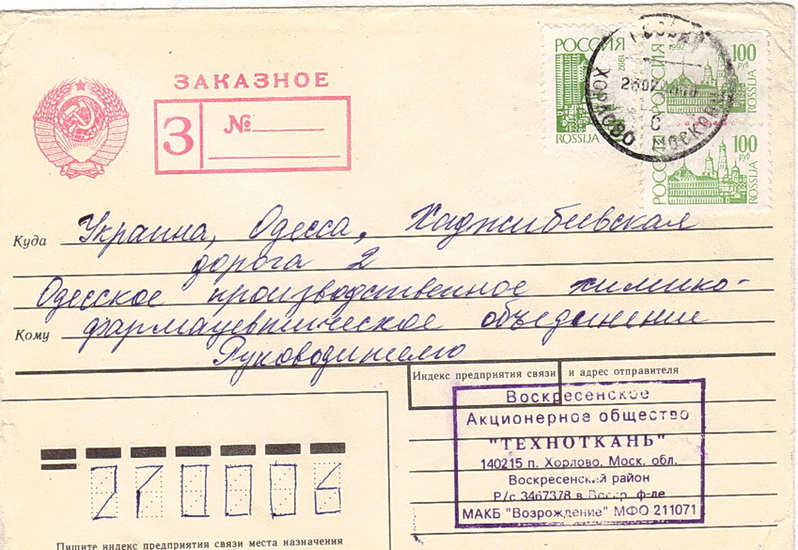 ЗАКАЗНОЕ
З №
РОССИЯ 1992 ROSSIJA
РОССИЯ 1992 100 руб ROSSIJA
РОССИЯ 100 руб ROSSIJA
ХОРЛОВО МОСКОВ
Куда Украина, Одесса, Хаджибеевская
дорога 2
Одесское производственное химико-
Кому фармацевтическое объединение
Руководителю
Индекс предприятия связи и адрес отправителя
Воскресенское
Акционерное общество
"ТЕХНОТКАНЬ"
140215 п. Хорлово, Моск. обл.
Воскресенский район
Р/с 3467378 в Воскр. ф-ле
МАКБ "Возрождение" МФО 211071
270006
Пишите индекс предприятия связи места назначения